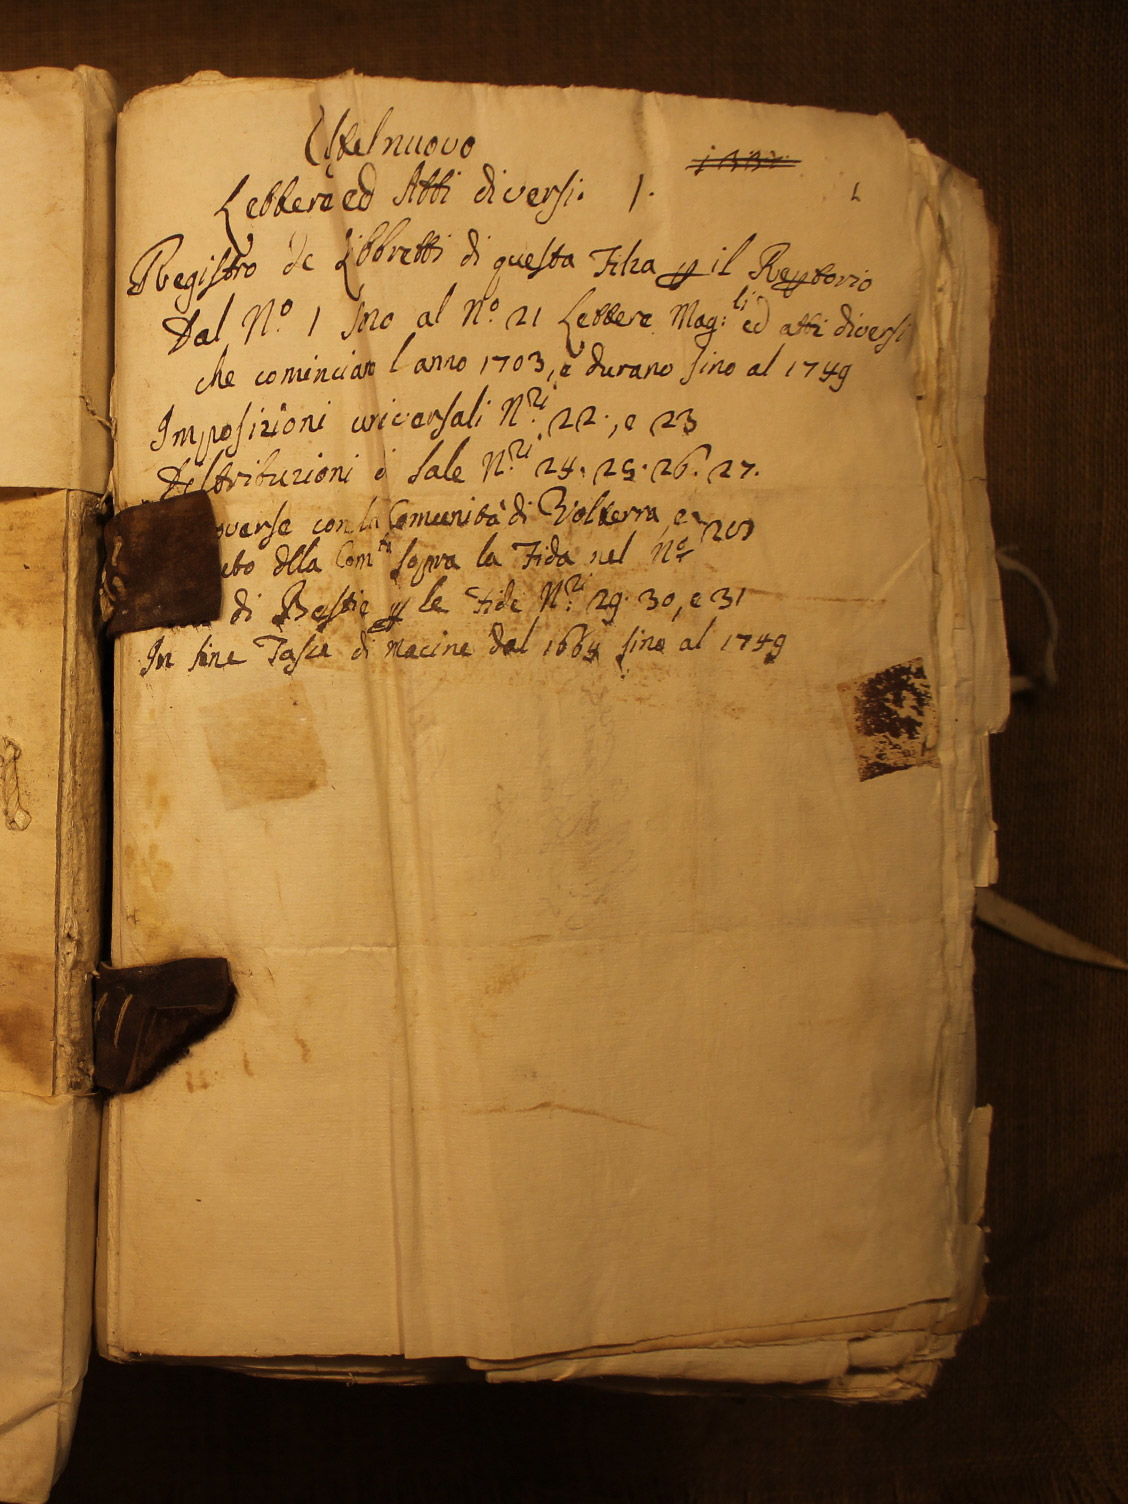 Castelnuovo
1337
Lettere ed Atti diversi. 1.
Registro de Libbretti di questa Filza p il Reptorio
Dal N.º 1 sino al Nº. 21 Lettere Mag:li ed atti diversi
che cominciano l anno 1703, e durano sino al 1749
Imposizioni universali N.ri 22., e 23
Distribuzioni di Sale N.ri 24. 25. 26. 27.
overse con la Comunità di Volterra, e
eto della Comtà sopra la Fida nel Nº 28
di Bestie p le Fide N.ri 29. 30, e 31
In fine Tasse di macine dal 1664 sino al 1749